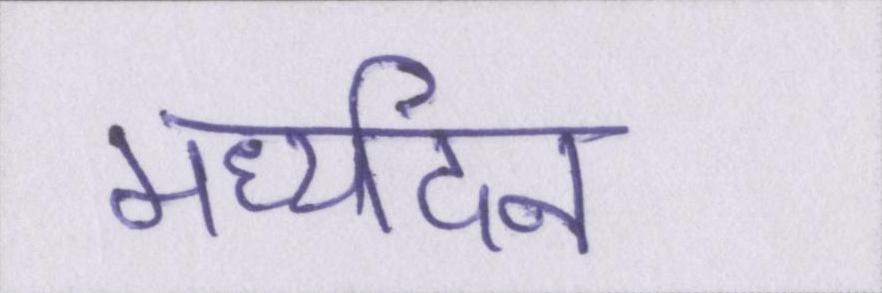 मध्यंदिन